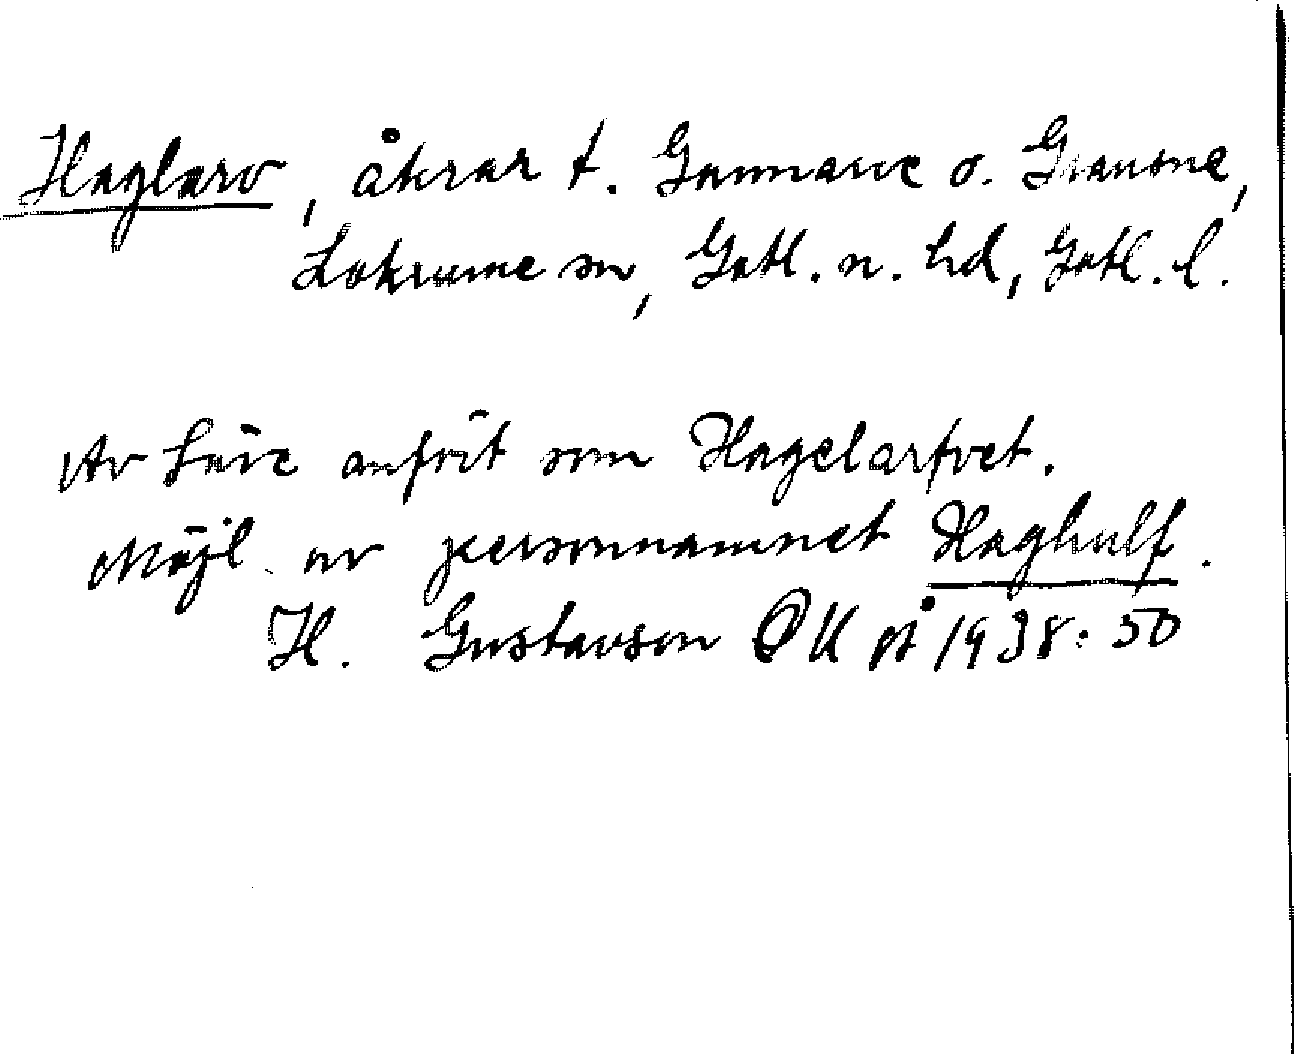 Haglarv, åkrar t. Gannarve o. Grausne,
Lokrume sn, Gotl. n. hd, Gotl. l.
Av Säve anfört som Hagelarfvet.
Möjl. av personnamnet Haghulf.
H. Gustavson OUÅ 1938: 50